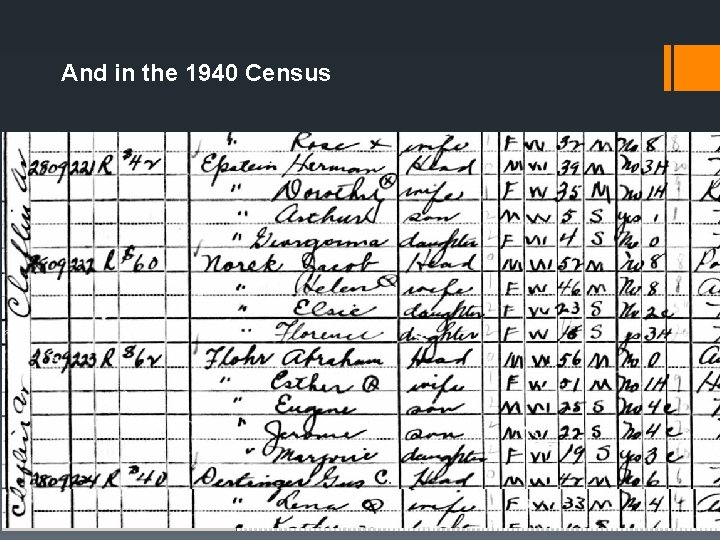 And in the 1940 Census
Claflin Av
Claflin Av
" Rose x wife F W 32 M No 8
2809 221 R $42 Epstein Herman Head M W 39 M No 3H
" Dorothy x wife F W 35 M No 1H
" Arthur son M W 5 S yes 1
" Georganna daughter F W 4 S No 0
2809 222 R $60 Norek Jacob Head M W 52 M No 8
" Helen x wife F W 46 M No 8
" Elsie daughter F W 23 S No 2c
" Florence daughter F W S yes 3H
2809 223 R $62 Flohr Abraham Head M W 56 M No 0
" Esther wife F W 51 M No 1H
" Eugene son M W 25 S No 4c
" Jerome son M W 22 S No 4c
" Marjorie daughter F W 19 S yes 3c
2809 224 R $40 Gus C. Head M W 42 M No 6
" Lena wife F W 33 M No 4